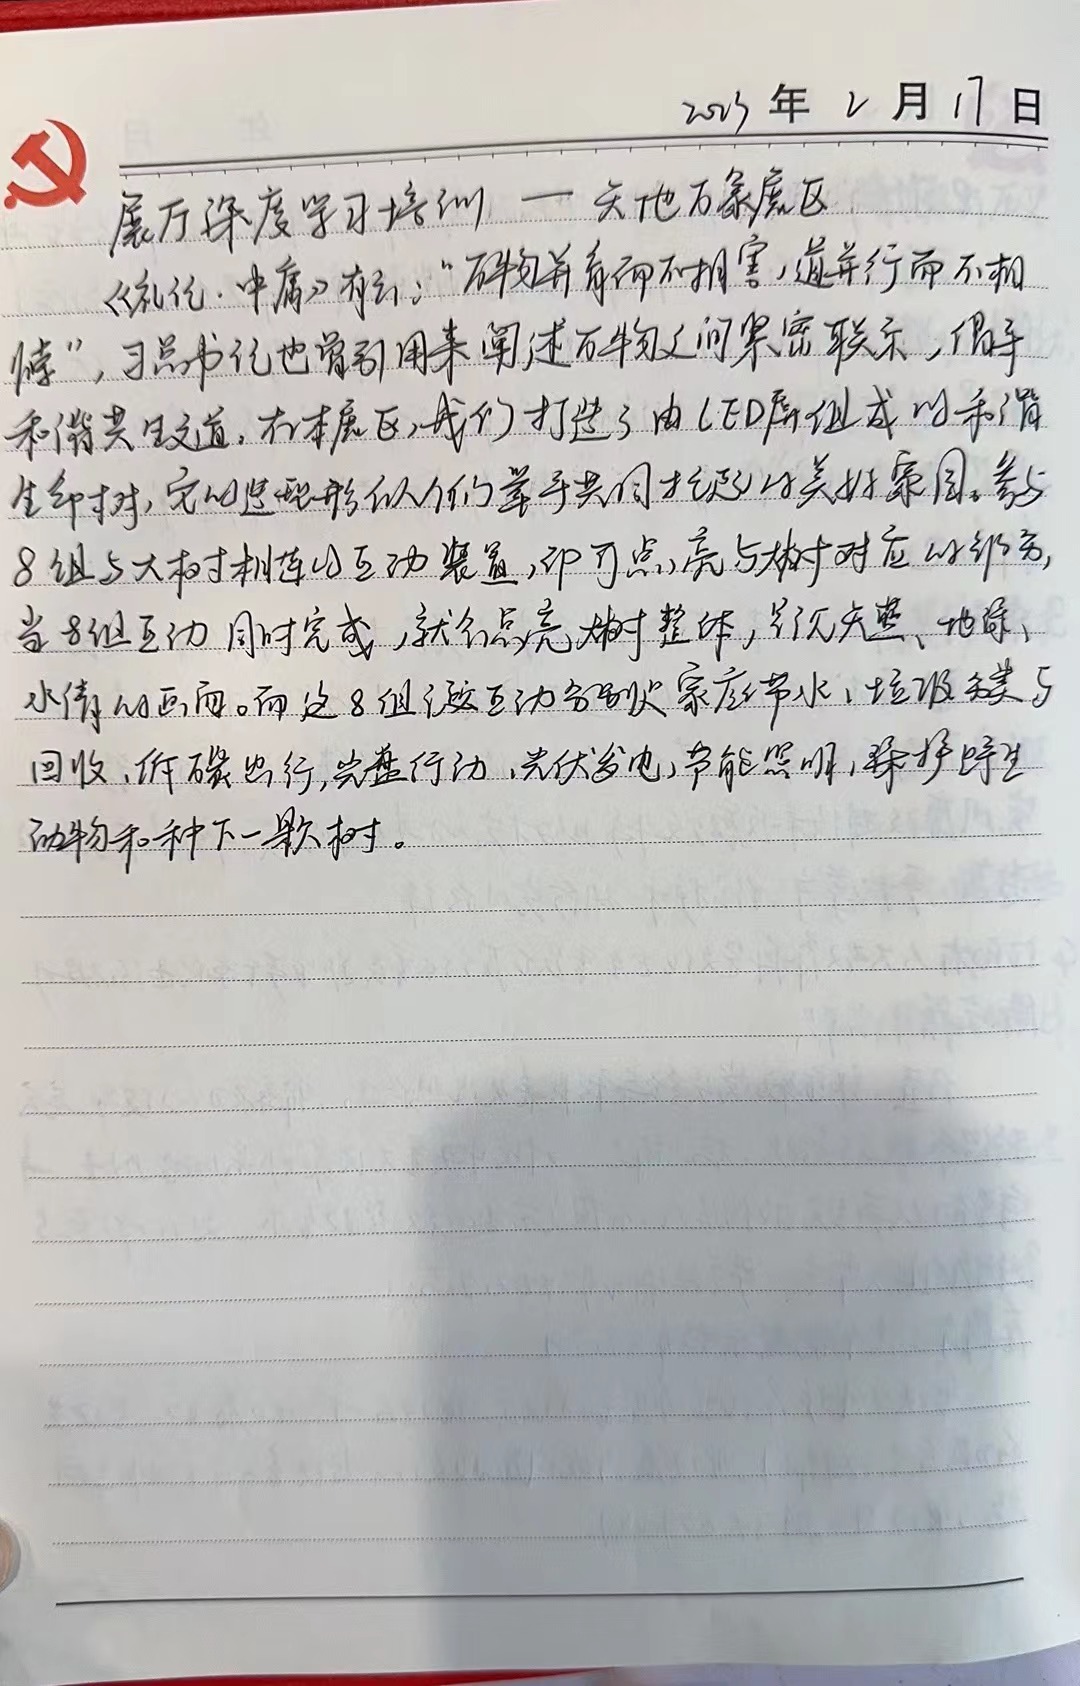 2023年2月17日
展厅深度学习培训 — 天地万象展区
《礼记·中庸》有云:“万物并育而不相害,道并行而不相
悖”,习总书记也曾引用来阐述万物之间紧密联系,倡导
和谐共生之道。在本展区,我们打造了由LED屏组成的和谐
生命树,它的造型形似人们举手共同托起的美好家园。参与
8组与大树相连的互动装置,即可点亮与大树对应的部分,
当8组互动同时完成,就会点亮大树整体,呈现天蓝、地绿、
水清的画面。而这8组互动分别是家庭节水、垃圾分类与
回收、低碳出行,光盘行动、光伏发电,节能照明,保护野生
动物和种下一颗树。